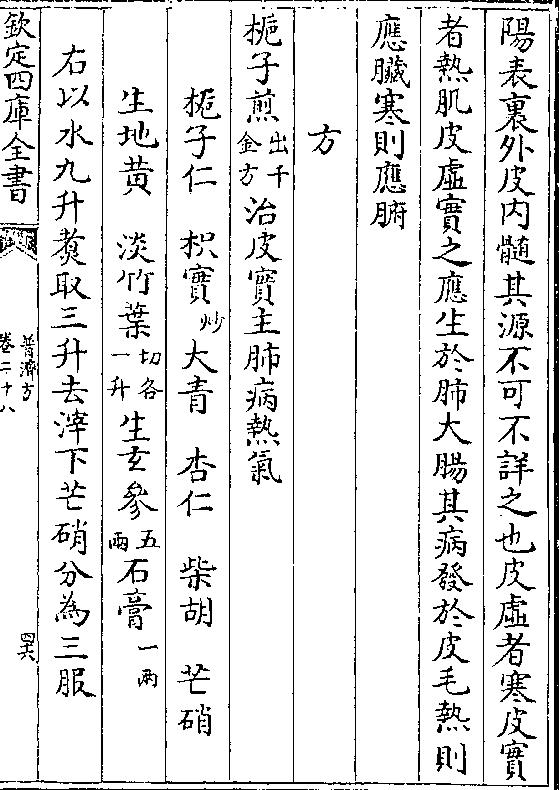 陽表裏外皮内髓其源不可不詳之也皮虛者寒皮實
者熱肌皮虛實之應生於肺大腸其病發於皮毛熱則
應臟寒則應腑
方
梔子煎出千金方治皮實主肺病熱氣
梔子仁 枳實炒 大青 杏仁 柴胡 芒硝
生地黄 淡竹葉切各一升 生玄參五兩 石膏一兩
右以水九升煑取三升去滓下芒硝分為三服
欽定四庫全書
普濟方
卷二十八
四六